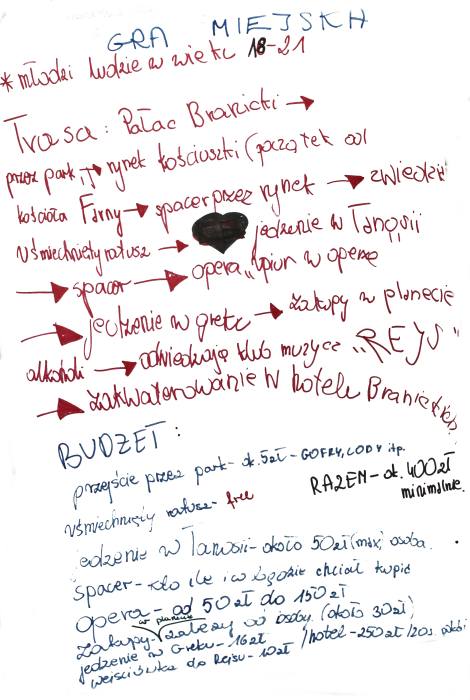 GRA MIEJSKA
* młodzi ludzie w wieku 18-21
Trasa: Pałac Branicki →
przez park → rynek kościuszki (początek od
kościoła Farny → spacer przez rynek → zwiedzić
uśmiechnięty ratusz → jedzenie w Tanąsii
→ spacer → opera „upiur w operze
→ jedzenie w greku → zakupy w planecie
alkoholi → odwiedzają klub muzyczc „REJS"
→ zakwaterowanie w hotelu Branickich
BUDŻET:
przejście przez park - ok. 5zł - GOFRY, LODY itp.
RAZEM - ok. 400zł
minimalnie.
uśmiechnięty ratusz - free
jedzenie w Tanosii - około 50zł (max) osoba.
spacer - kto ile i w będzie chciał kupić
opera - od 50zł do 150zł
w planecie
zakupy - zależy od osoby. (około 30zł)
jedzenie w Greku - 16zł /hotel - 250zł /2os. pokój
wejściówka do Rejsu - 10zł